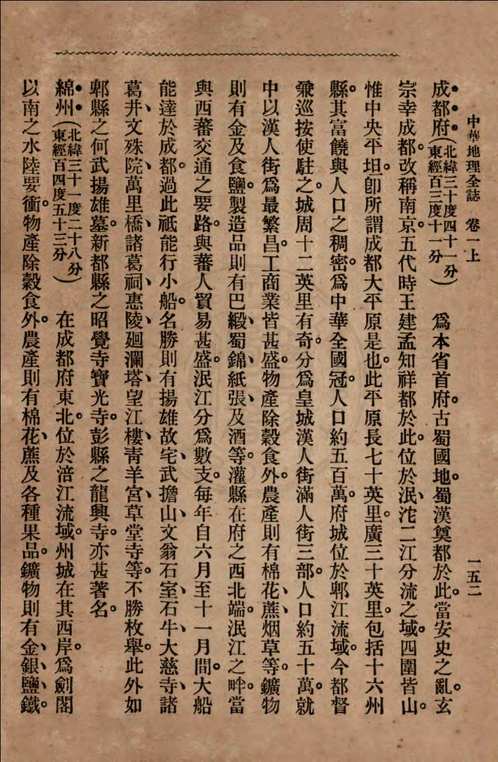 中華地理全誌　卷一上
一五二
成都府(北緯三十度四十一分東經百四度十一分)　爲本省首府。古蜀國地。蜀漢奠都於此。當安史之亂。玄
宗幸成都。改稱南京。五代時王建孟知祥都於此。位於泯沱二江分流之域。四圍皆山。
惟中央平坦。卽所謂成都大平原是也。此平原長七十英里。廣三十英里。包括十六州
縣。其富饒與人口之稠密。爲中華全國冠。人口約五百萬。府城位於郫江流域。今都督
兼巡按使駐之。城周十二英里有奇。分爲皇城漢人街滿人街三部。人口約五十萬。就
中以漢人街爲最繁昌。工商業皆甚盛。物產除穀食外。農產則有棉花、蔗、烟草等。鑛物
則有金及食鹽。製造品則有巴緞、蜀錦、紙張及酒等。灌縣在府之西北端。泯江之畔。當
與西蕃交通之要路。與蕃人貿易甚盛。泯江分爲數支。每年自六月至十一月間。大船
能達於成都。過此祗能行小船。名勝則有揚雄故宅、武擔山、文翁石室、石牛、大慈寺、諸
葛井、文殊院、萬里橋、諸葛祠、惠陵、廻瀾塔、望江樓、青羊宮、草堂寺等。不勝枚舉。此外如
郫縣之何武揚雄墓。新都縣之昭覺寺寶光寺。彭縣之龍興寺。亦甚著名。
綿州(北緯三十一度二十八分東經百四度五十三分)　在成都府東北。位於涪江流域。州城在其西岸。爲劍閣
以南之水陸要衝。物產除穀食外。農產則有棉花、蔗及各種果品。鑛物則有金、銀、鹽、鐵。